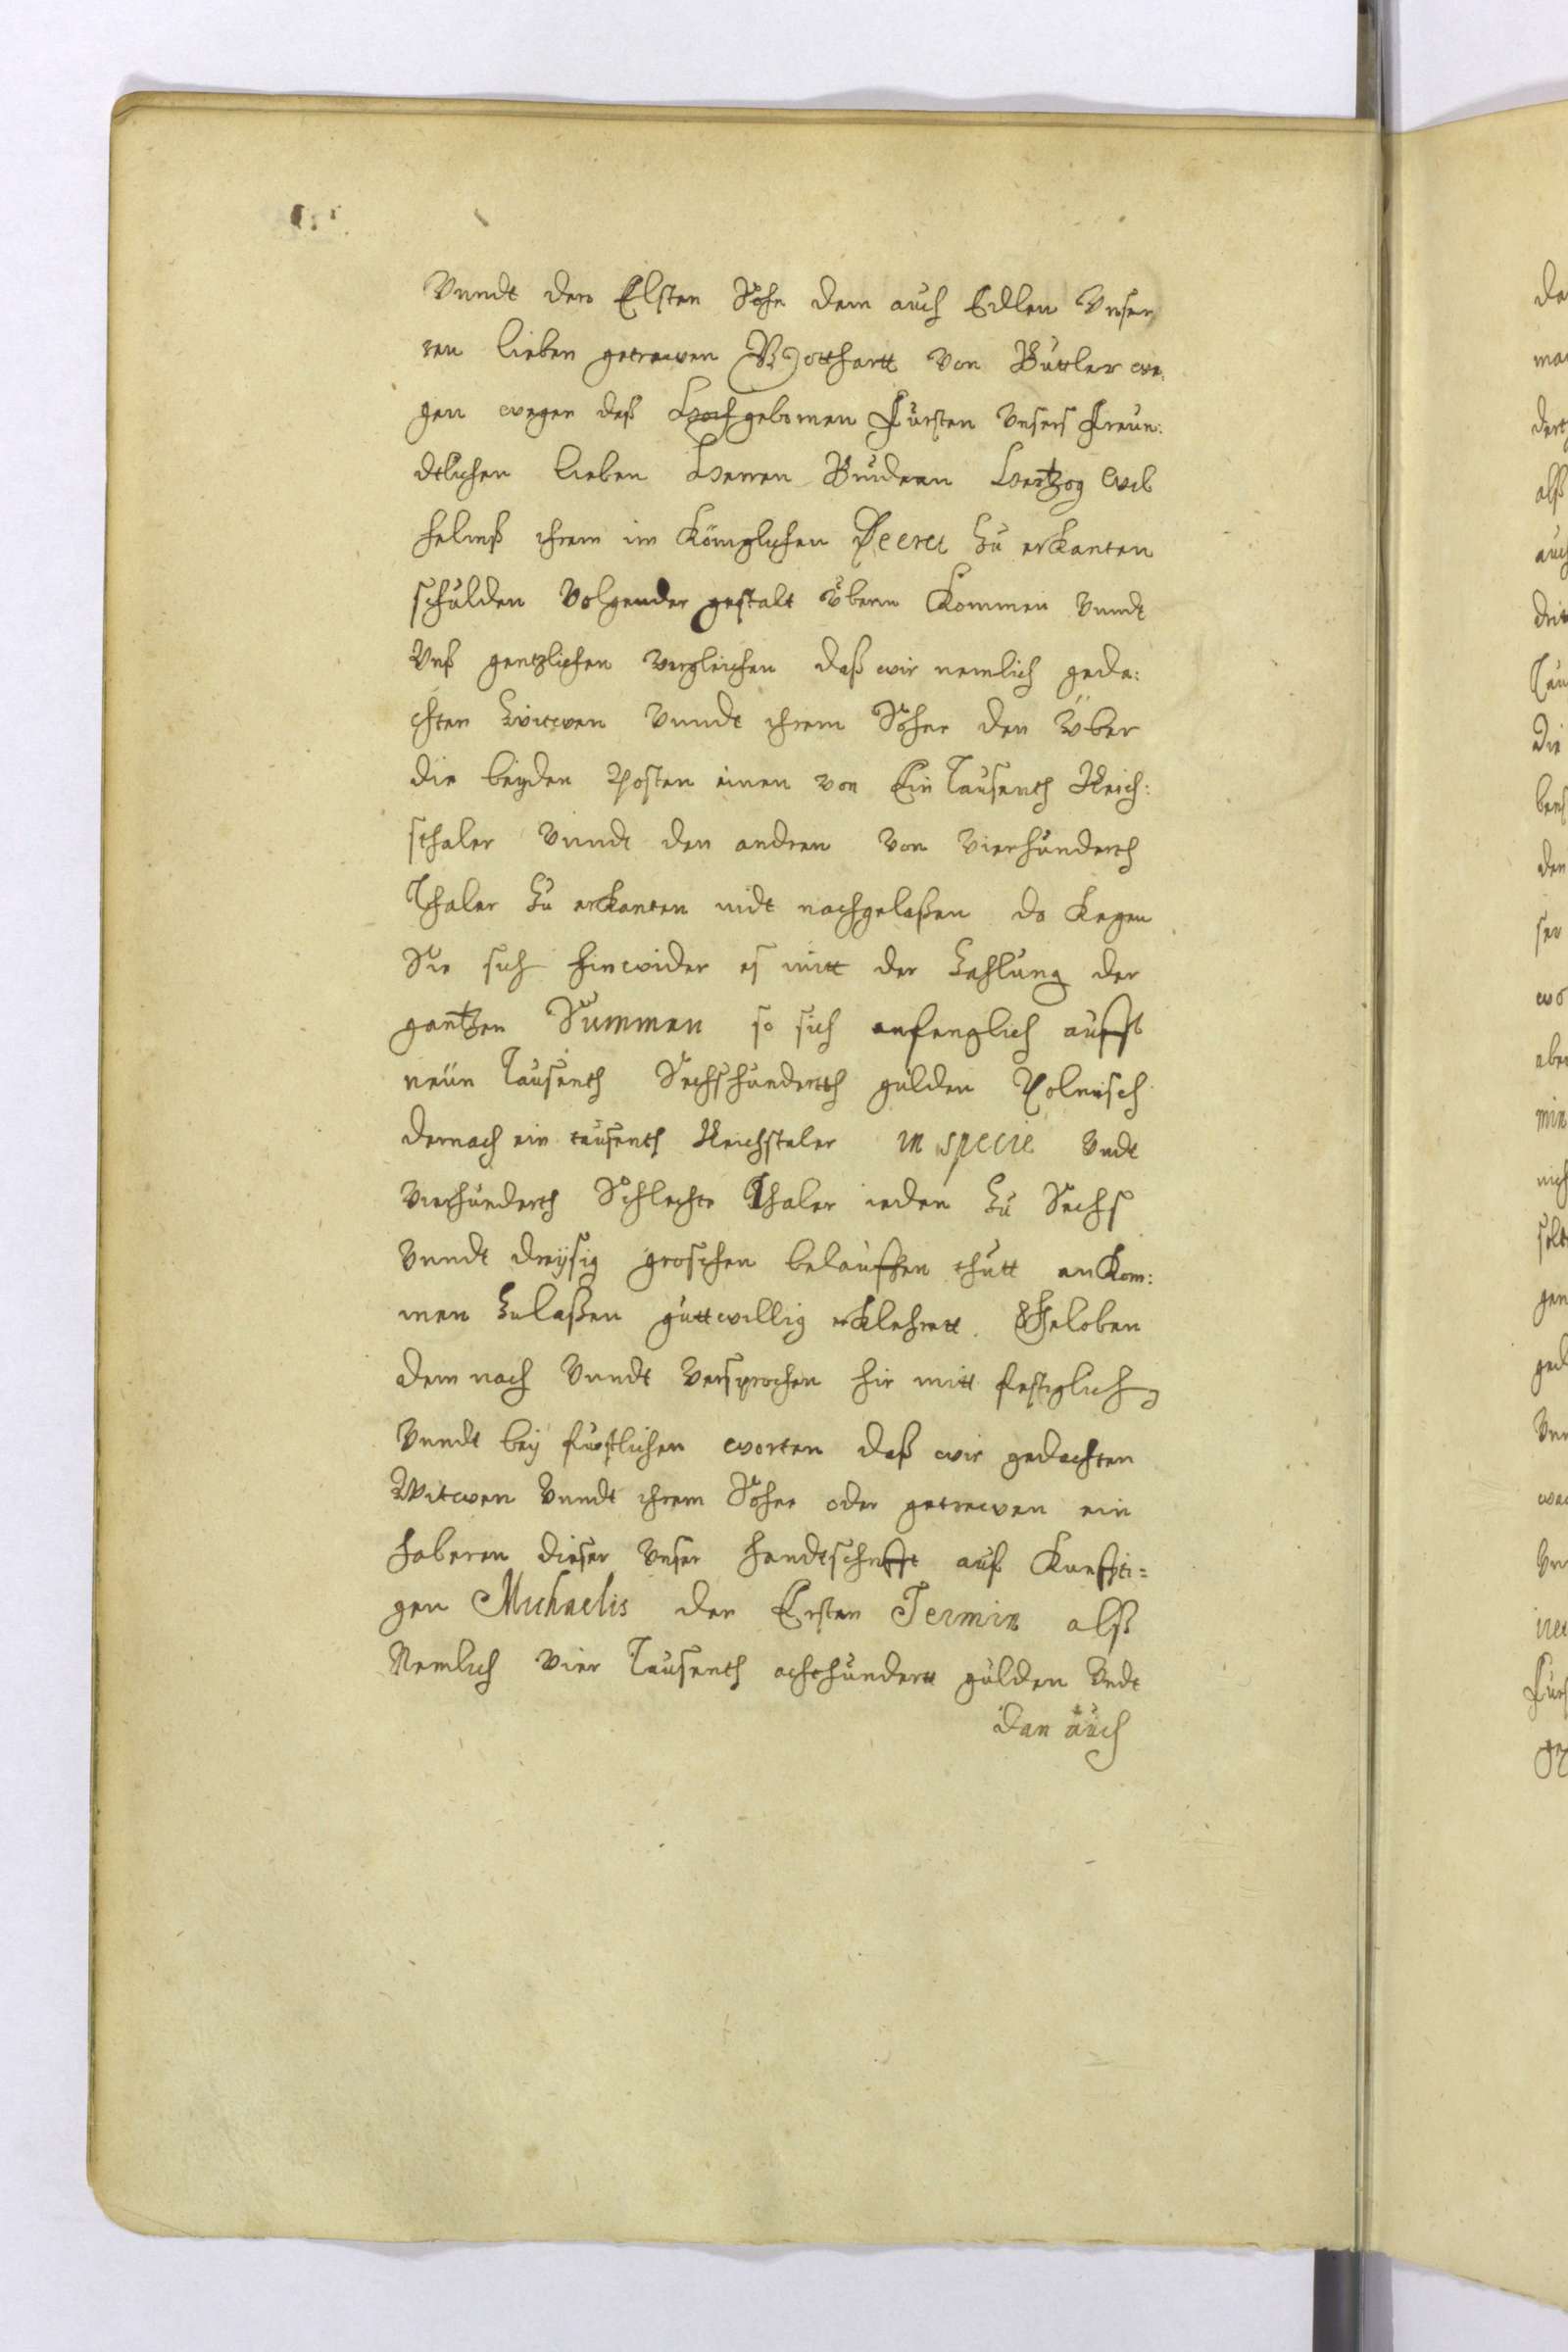 Vnndt dero Elsten Sohn dem auch Edlen Vnser
ren lieben getrewen Gotthartt von Buttler we:
gen wegen deß Hochgebornen Fürsten Vnsers Freun:
dtlichen lieben Herren Brudern Hertzog Wil
helmß ihrem im Königlichen Decret Zu erkanten
schulden Volgender gestalt überein Kommen Vnndt
Vnß gentzlichen vergleichen daß wir nemlich geda:
chten Witwen Vnndt ihrem Sohne den Über
die beyden Posten einen von Ein Tausenth Reich:
sthaler Vnndt den andren von Vierhunderth
Thaler Zu erkanten nidt nachgelaßen da Kegen
Sie sich hinwider es mitt der Zahlung der
gantzen Summen so sich anfenglich auffs
neun Tausenth Sechshundertth gulden Polnisch
dernach ein tausenth Reichstaler in specie Vndt
Vierhunderth Schlechte Thaler ieden Zu Sechs
Vnndt dreysig groschen belauffen thutt anKom:
men Zulaßen guttwillig erklehrett. Geloben
dem nach Vnndt Versprochen hir mitt festiglich
Vnndt bey fürstlichen worten daß wir gedachten
Witwen Vnndt ihrem Sohne oder getrewen ein
haberen dieser Vnser handtschrifft auf Kunffti=
gen Michaelis den Ersten Termin alß
Nemlich Vier Tausenth achthundertt gulden Vndt
dan auch